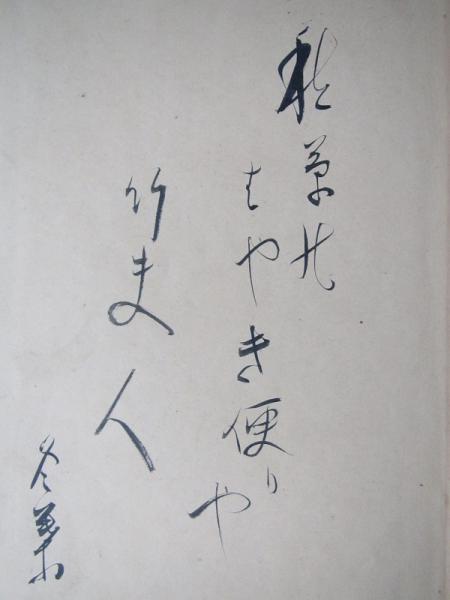 秋草の
はやき便りや
竹夫人
冬葉